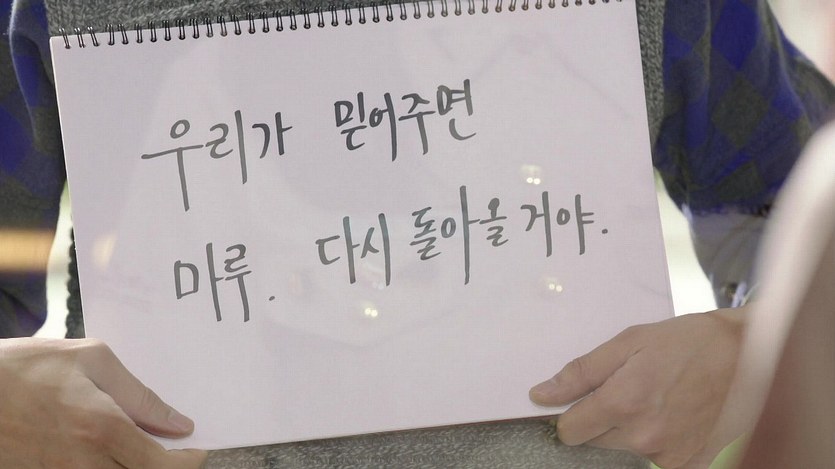 우리가 믿어주면
마루. 다시 돌아올 거야.